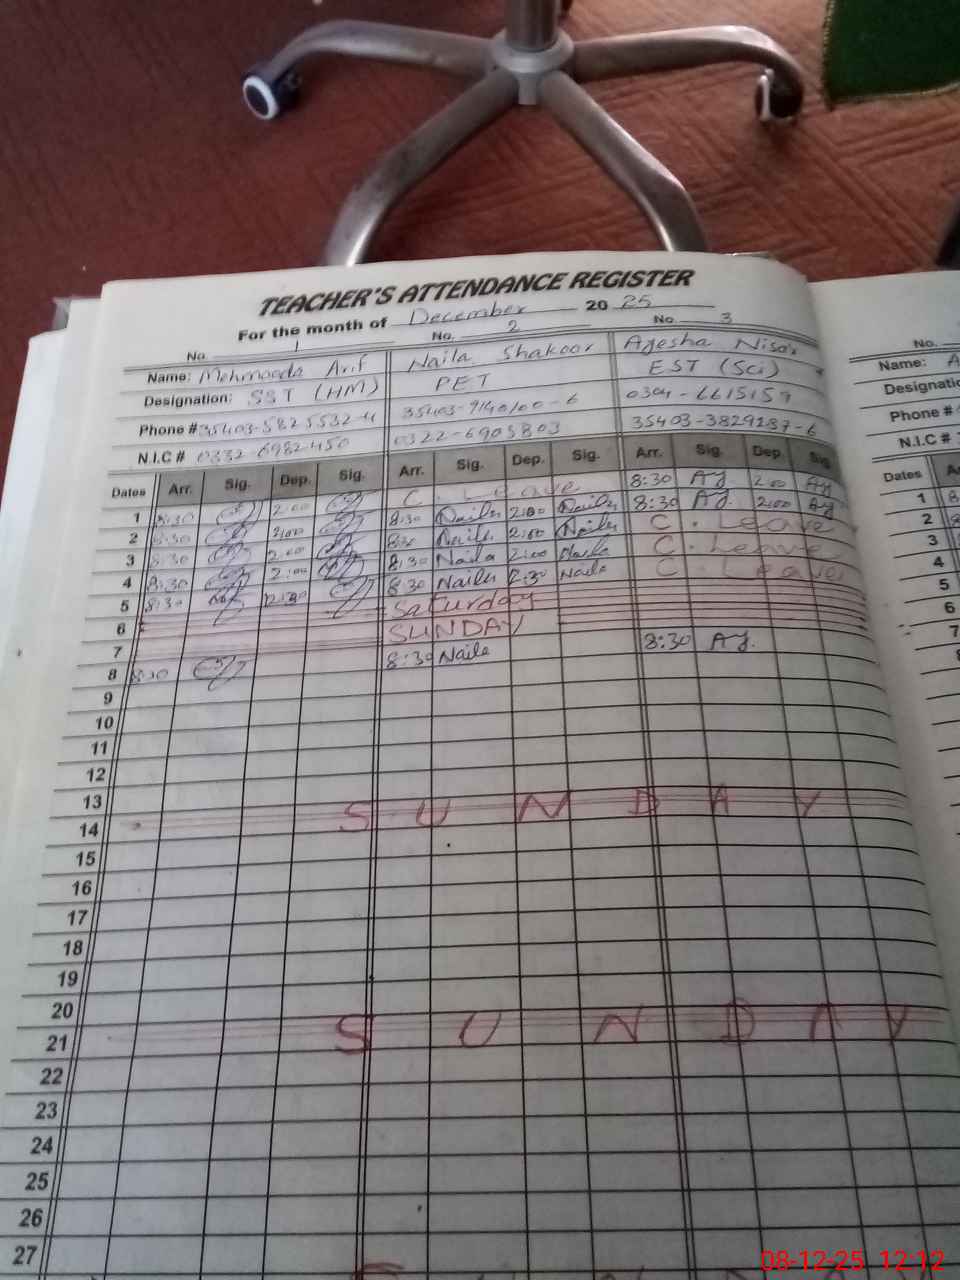 TEACHER'S ATTENDANCE REGISTER
For the month of December 2025
No. 1 No. 2 No. 3 No.
Name: Mehmooda Arif Naila Shakoor Ayesha Nisar Name: A
Designation: SST (HM) PET EST (Sci) Designatio
Phone # 35403-5825532-4 35403-9140100-6 0304-6615159 Phone #
N.I.C # 0332-6982450 0322-6905803 35403-3829187-6 N.I.C #
Dates Arr. Sig. Dep. Sig. Arr. Sig. Dep. Sig. Arr. Sig. Dep. Sig Dates
1 8:30 2:00 C. Leave 8:30 Ay 2:00 Ay 1
2 8:30 2:00 8:30 Naila 2:00 Naila 8:30 Ay. 2:00 Ay 2
3 8:30 2:00 8:30 Naila 2:00 Naila C. Leave 3
4 8:30 2:00 8:30 Naila 2:00 Naila C. Leave 4
5 8:30 12:30 8:30 Naila 12:30 Naila C. Leave 5
6 Saturday 6
7 SUNDAY 7
8 8:30 8:30 Naila 8:30 Ay.
9
10
11
12
13
14 SUNDAY
15
16
17
18
19
20
21 SUNDAY
22
23
24
25
26
27
08-12-25 12:12